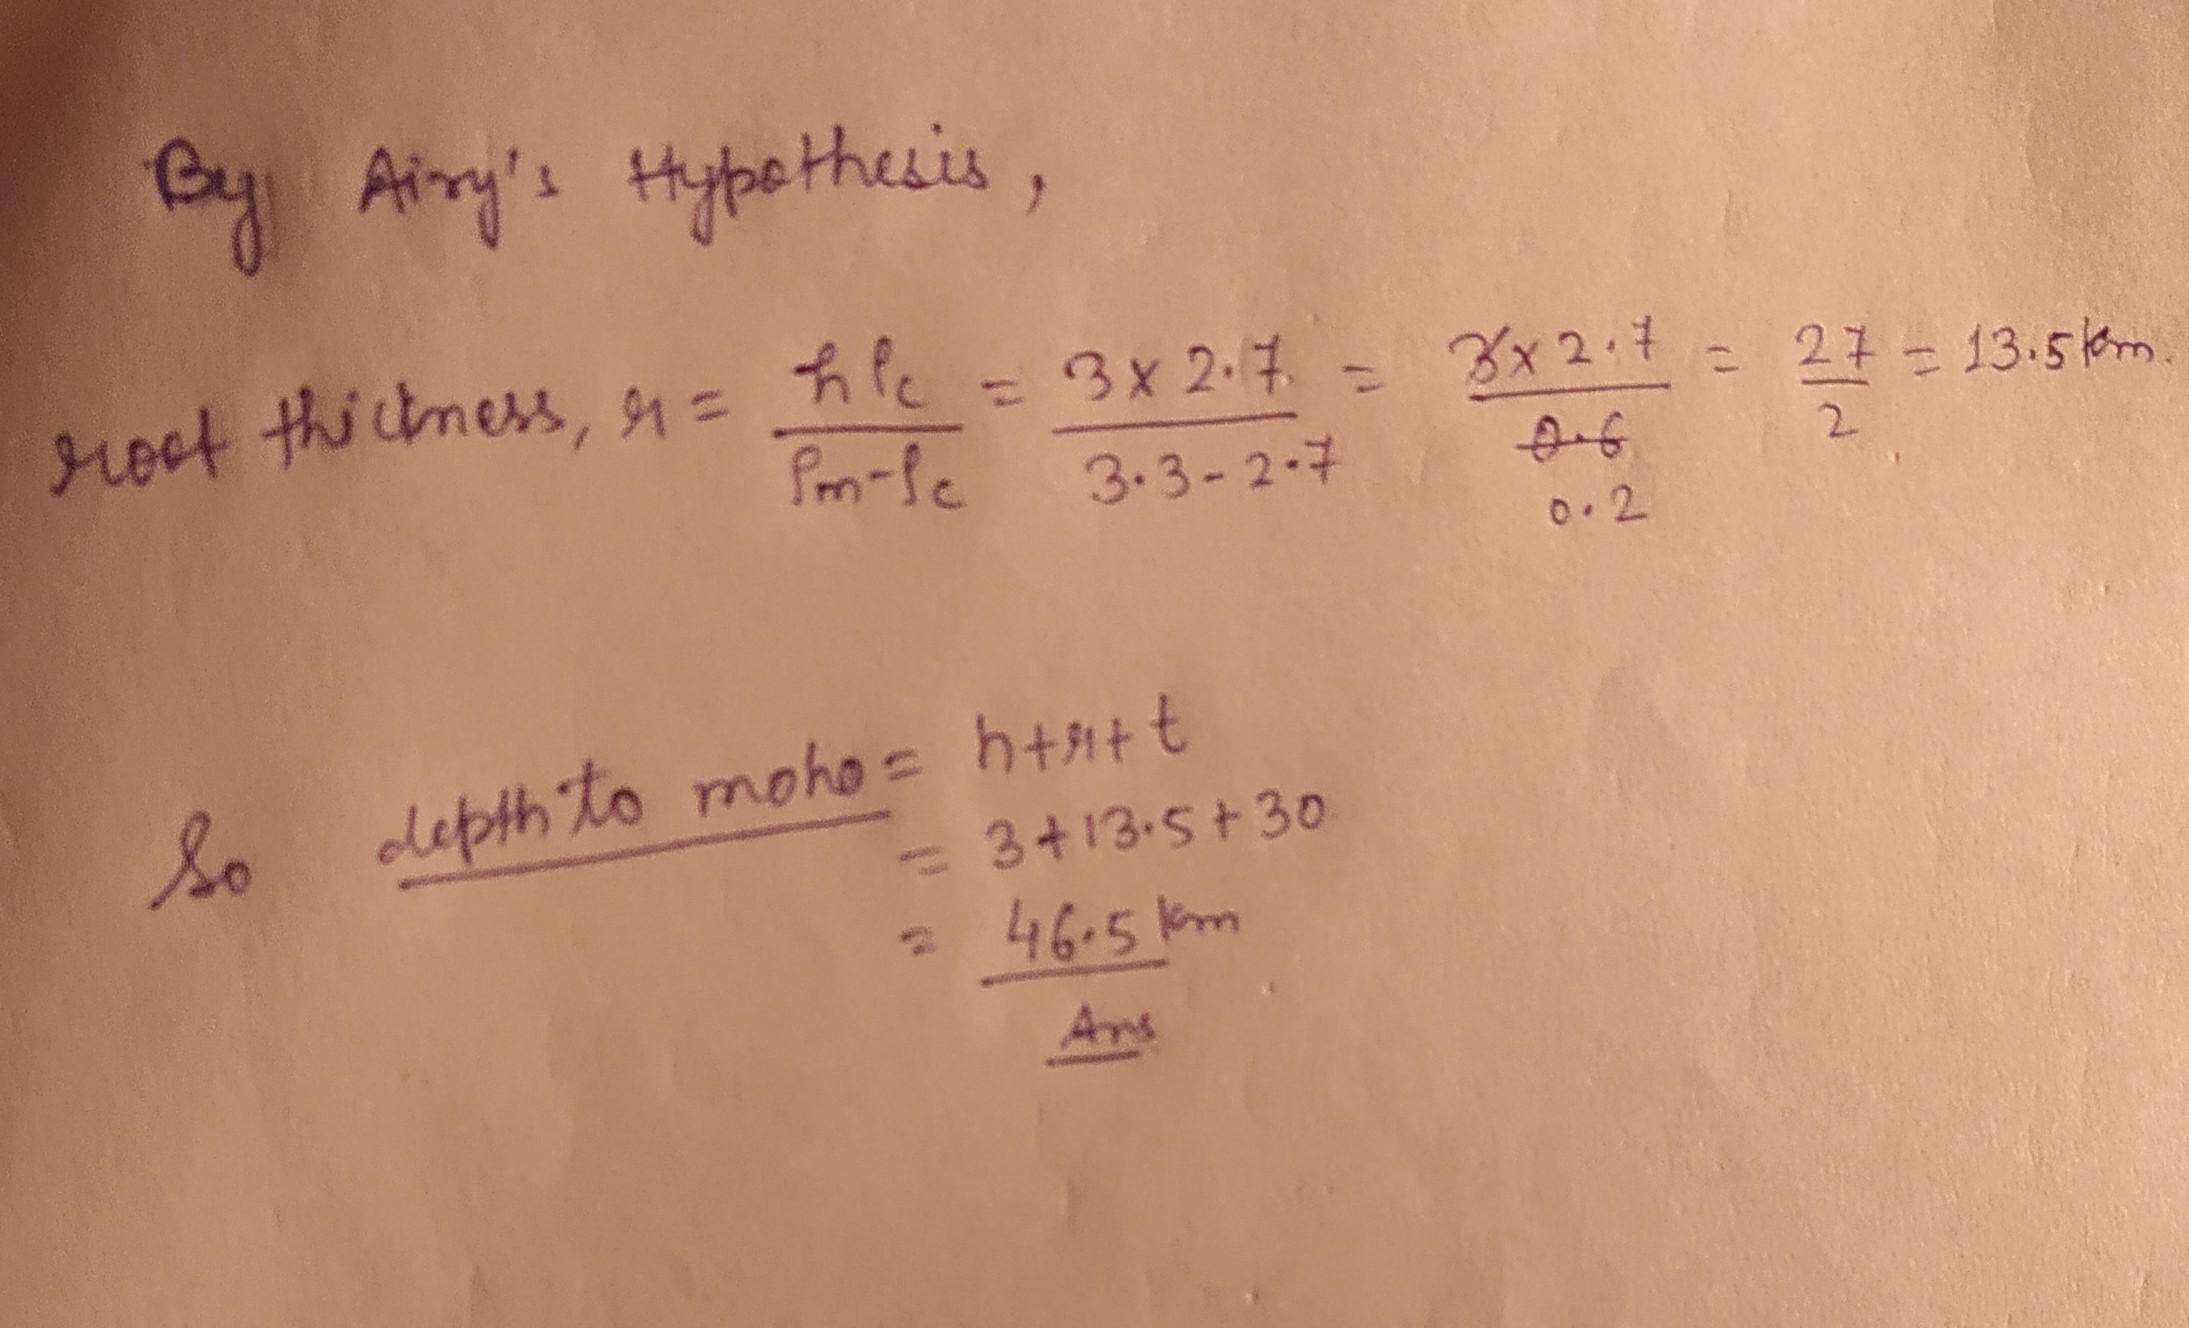 By Airy's Hypothesis,
root thickness, r = hρc / ρm-ρc = 3 x 2.7 / 3.3 - 2.7 = 3 x 2.7 / 0.6 0.2 = 27 / 2 = 13.5 km.
So depth to moho = h+r+t
= 3+13.5+30
= 46.5 km
Ans